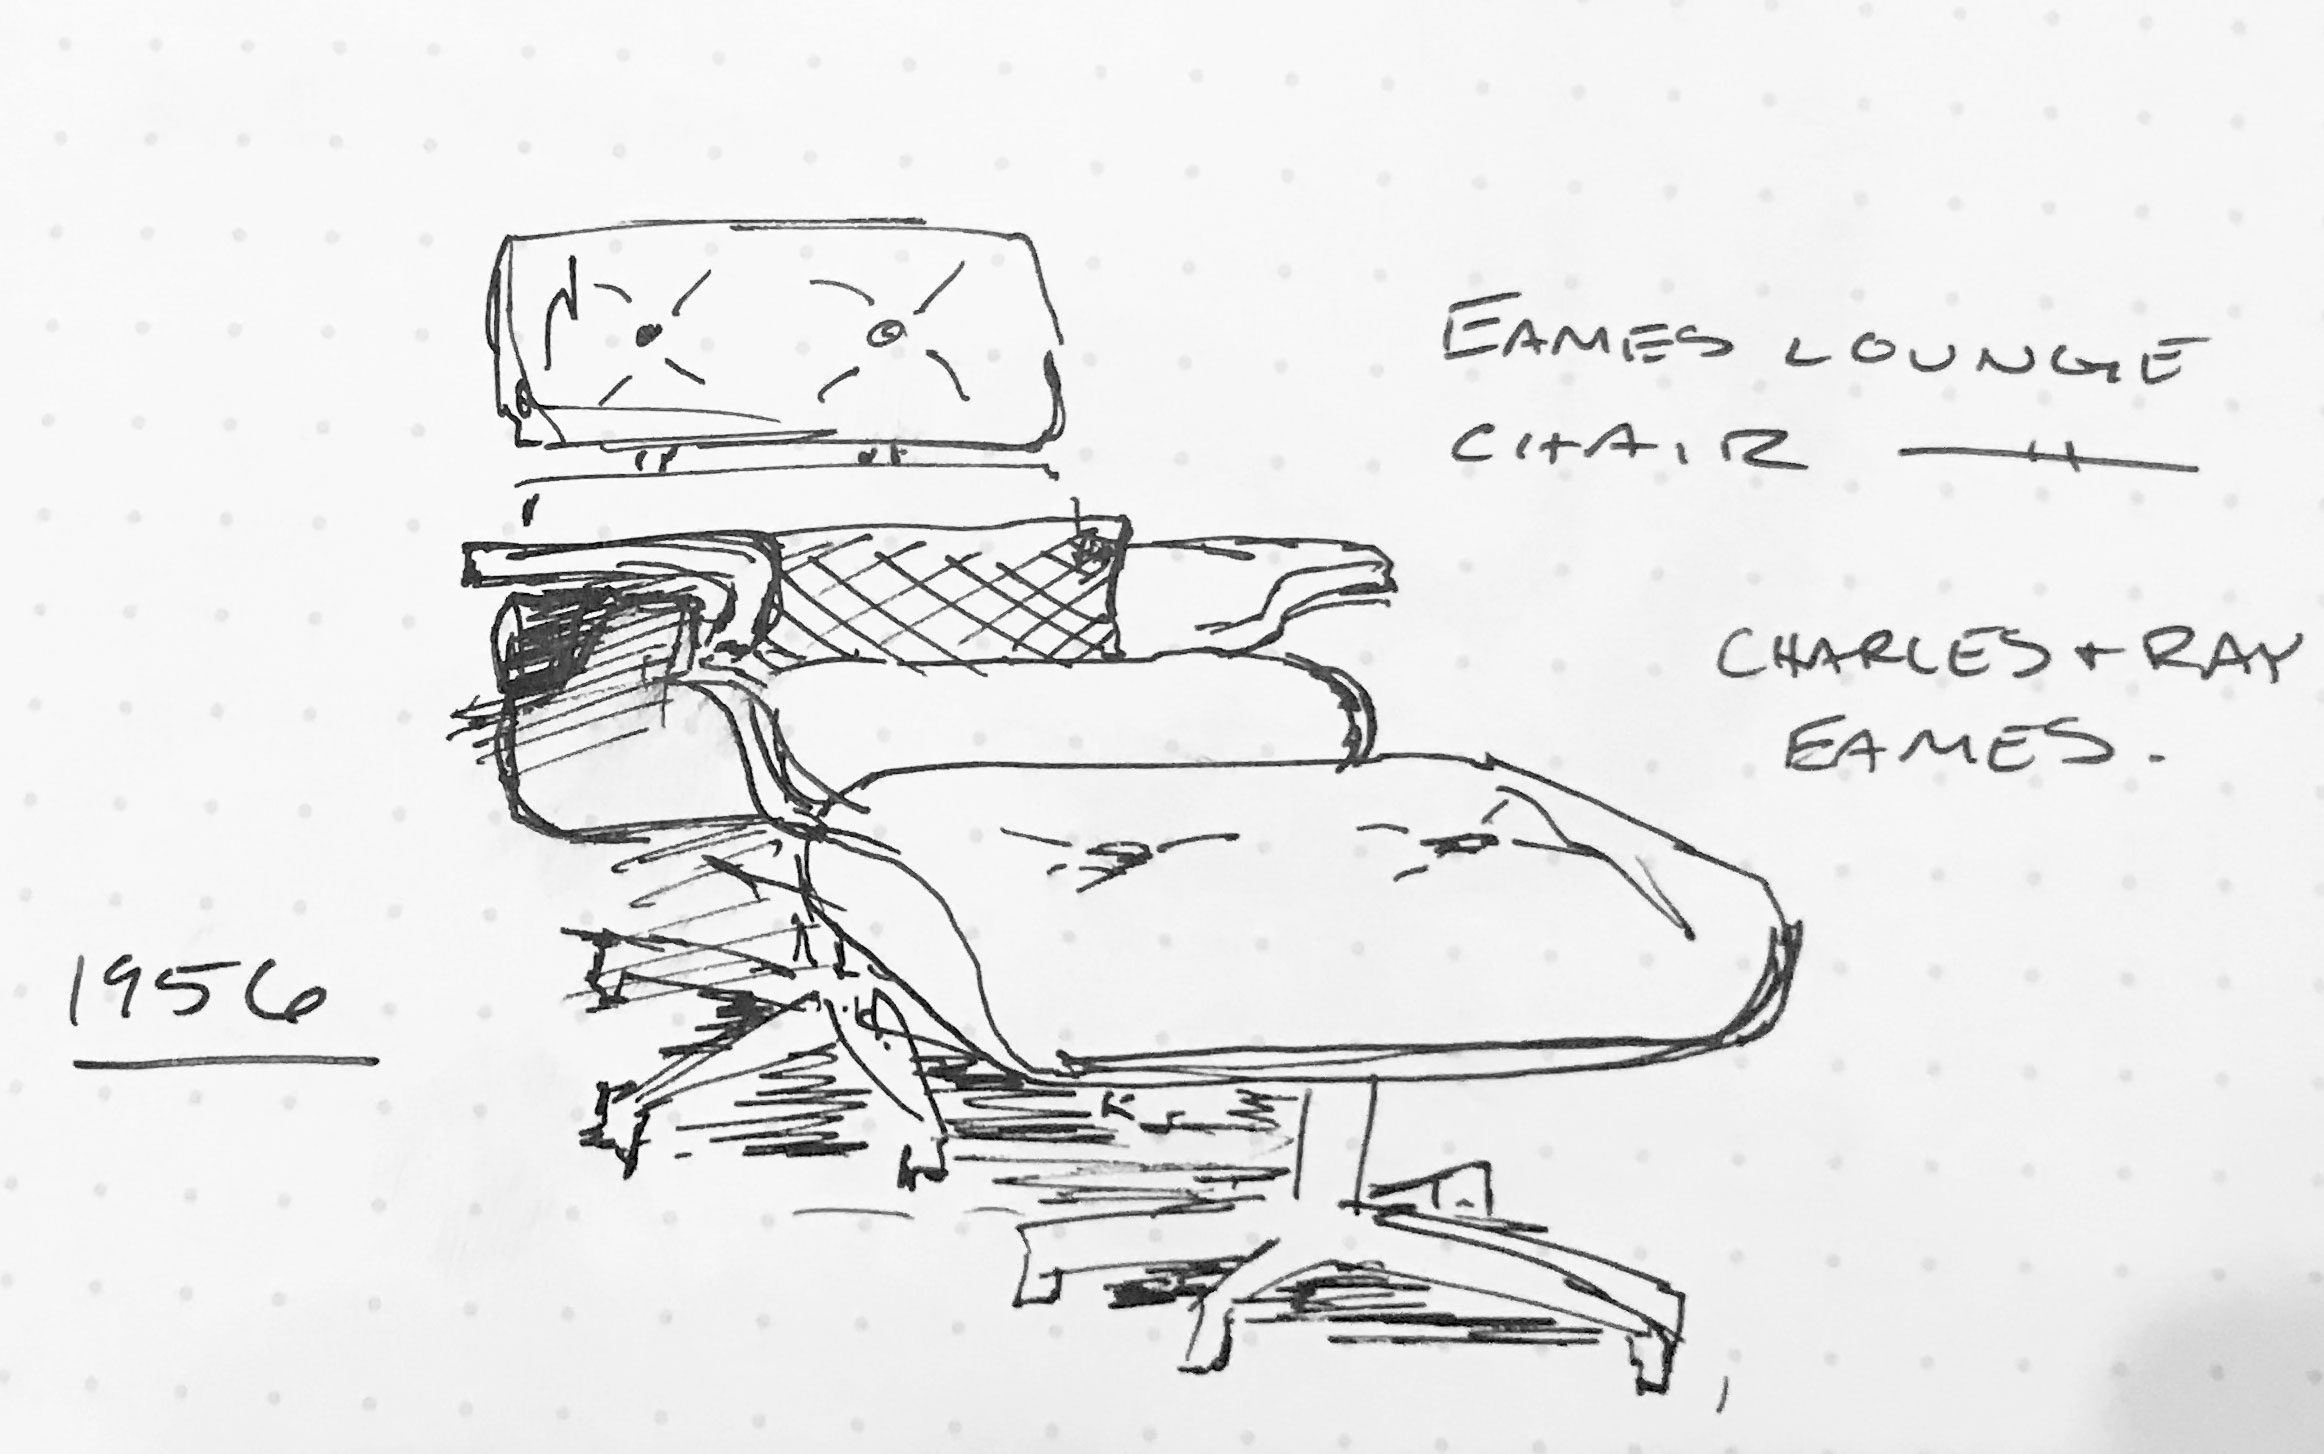 EAMES LOUNGE
CHAIR
CHARLES + RAY
EAMES.
1956